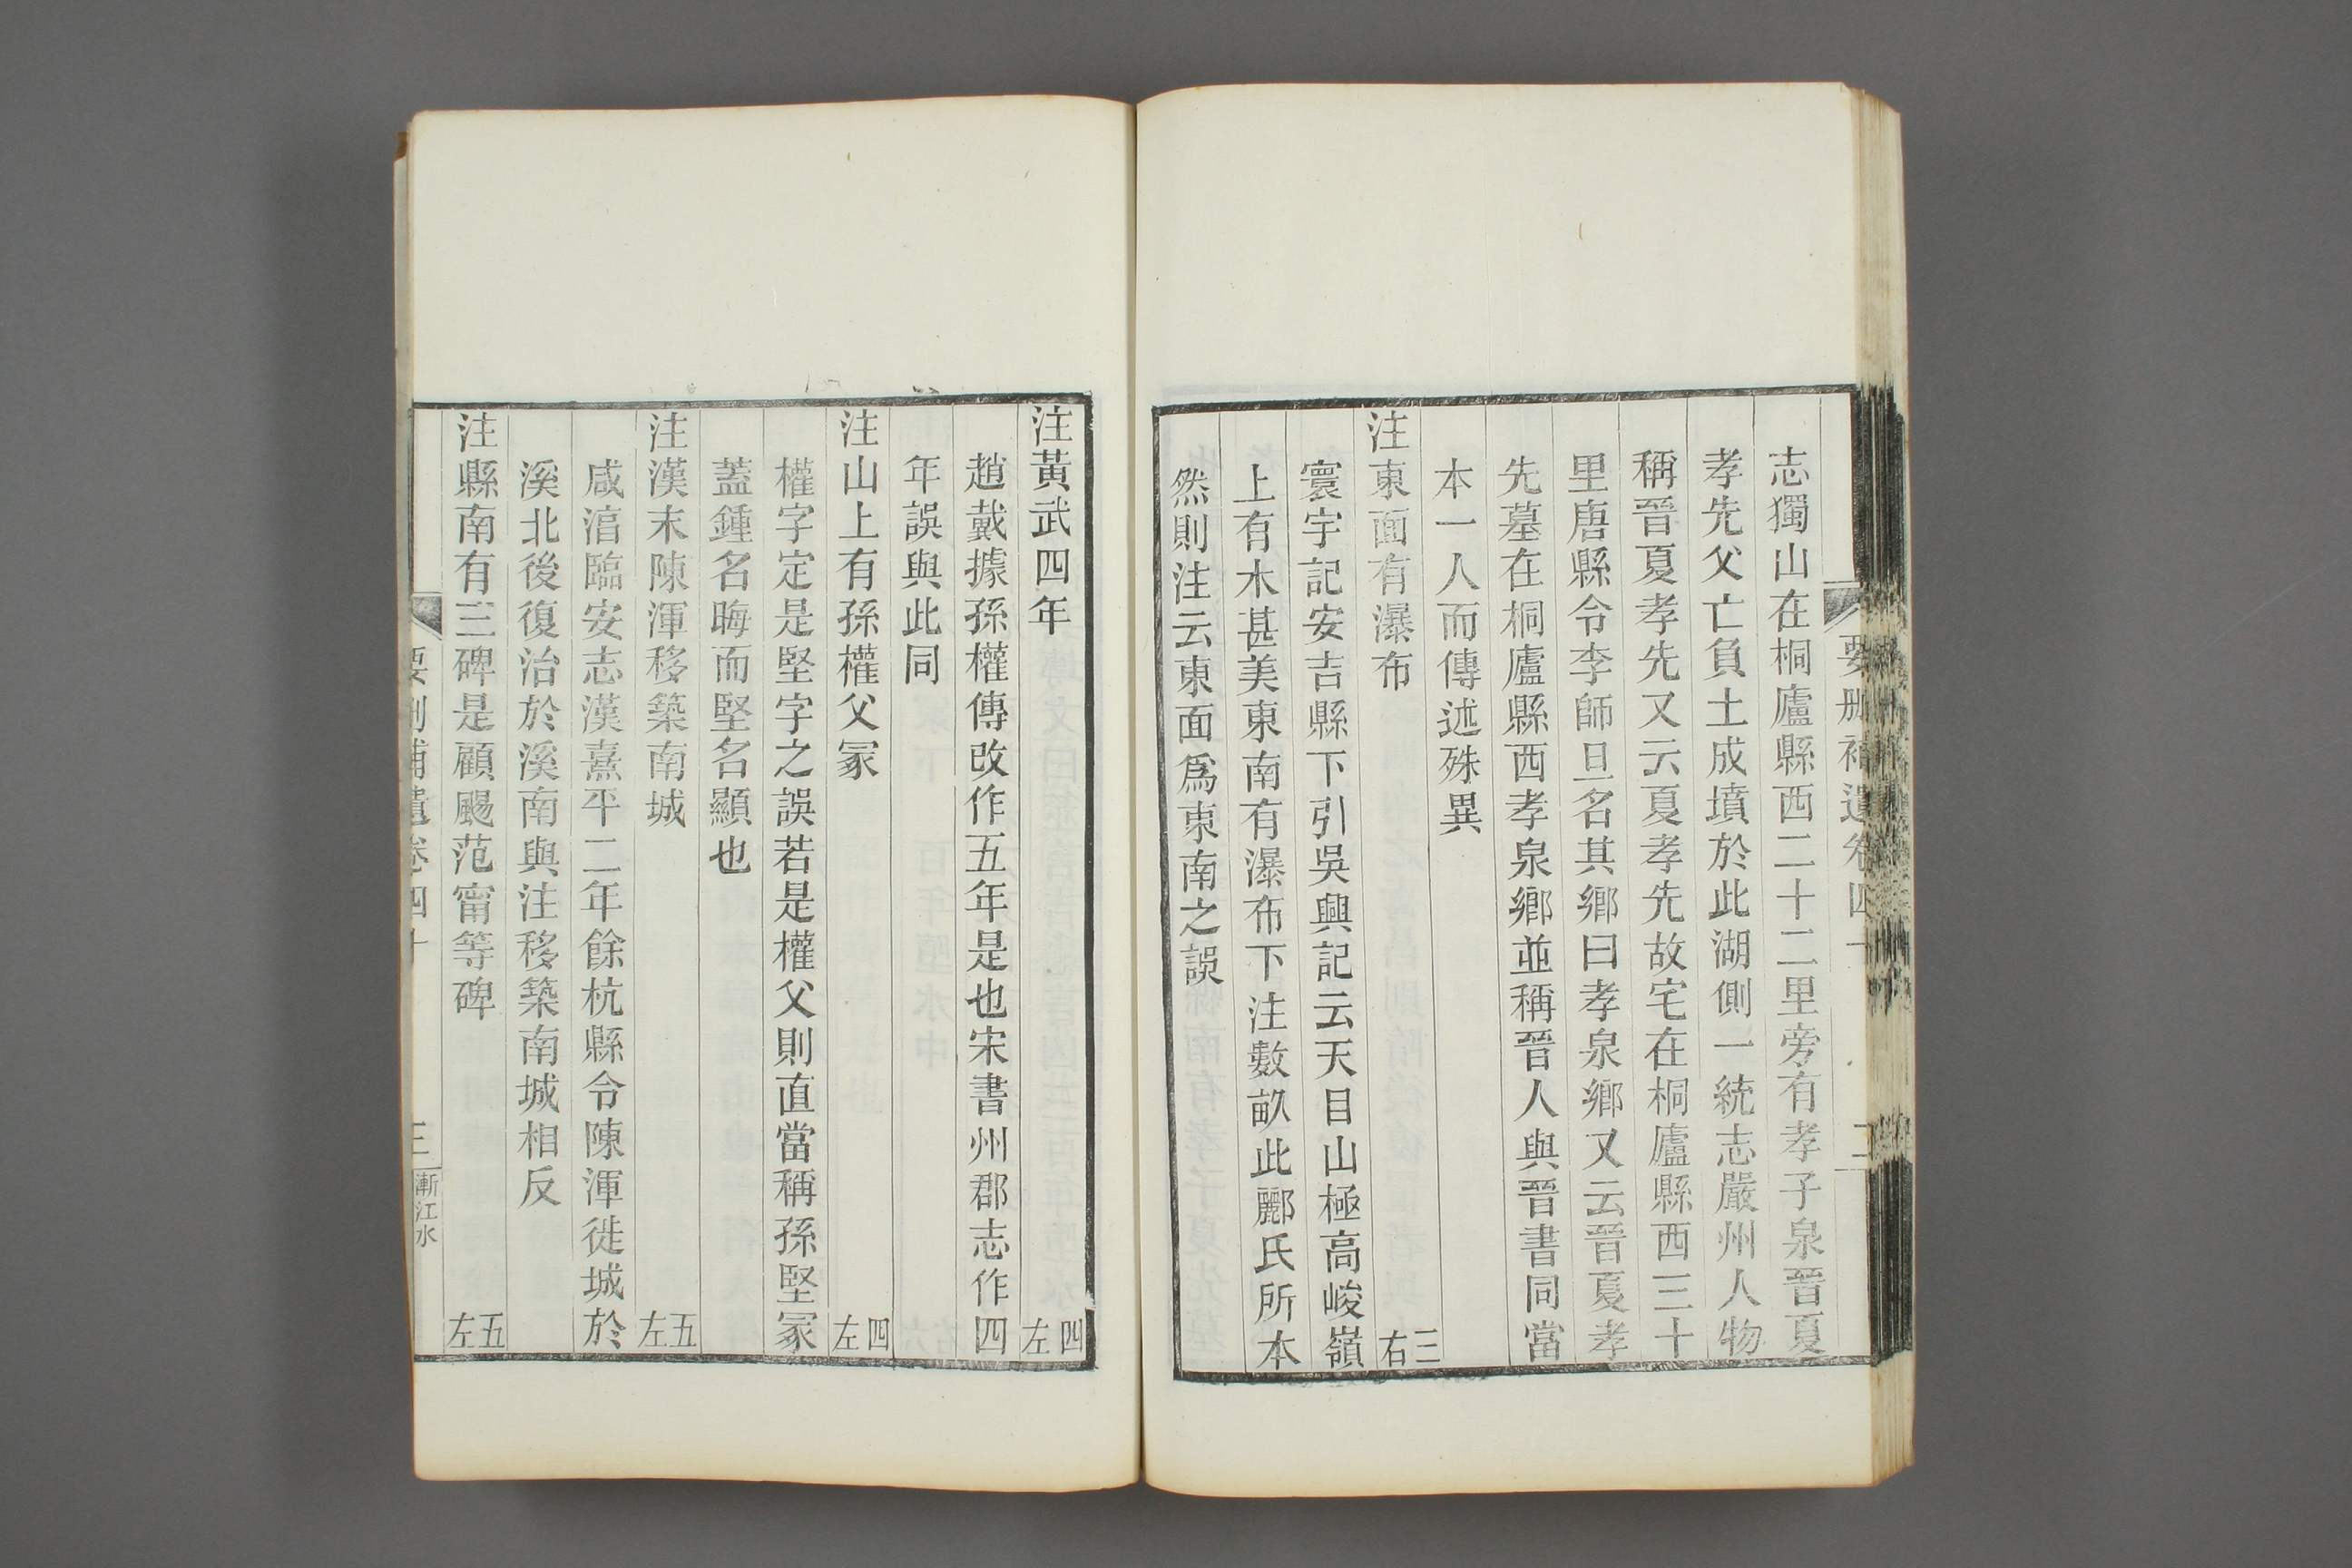 要刪補遺卷四十
二
志獨山在桐廬縣西二十二里旁有孝子泉晉夏
孝先父亡負土成墳於此湖側一統志嚴州人物
稱晉夏孝先又云夏孝先故宅在桐廬縣西三十
里唐縣令李師旦名其鄉曰孝泉鄉又云晉夏孝
先墓在桐廬縣西孝泉鄉並稱晉人與晉書同當
本一人而傳述殊異
注東面有瀑布 三右
寰宇記安吉縣下引吳興記云天目山極高峻嶺
上有木甚美東南有瀑布下注數畝此酈氏所本
然則注云東面爲東南之誤
注黃武四年 四左
趙戴據孫權傳改作五年是也宋書州郡志作四
年誤與此同
注山上有孫權父冢 四左
權字定是堅字之誤若是權父則直當稱孫堅冢
蓋鍾名晦而堅名顯也
注漢末陳渾移築南城 五左
咸淳臨安志漢熹平二年餘杭縣令陳渾徙城於
溪北後復治於溪南與注移築南城相反
注縣南有三碑是顧颺范甯等碑 五左
要刪補遺卷四十
三
漸江水